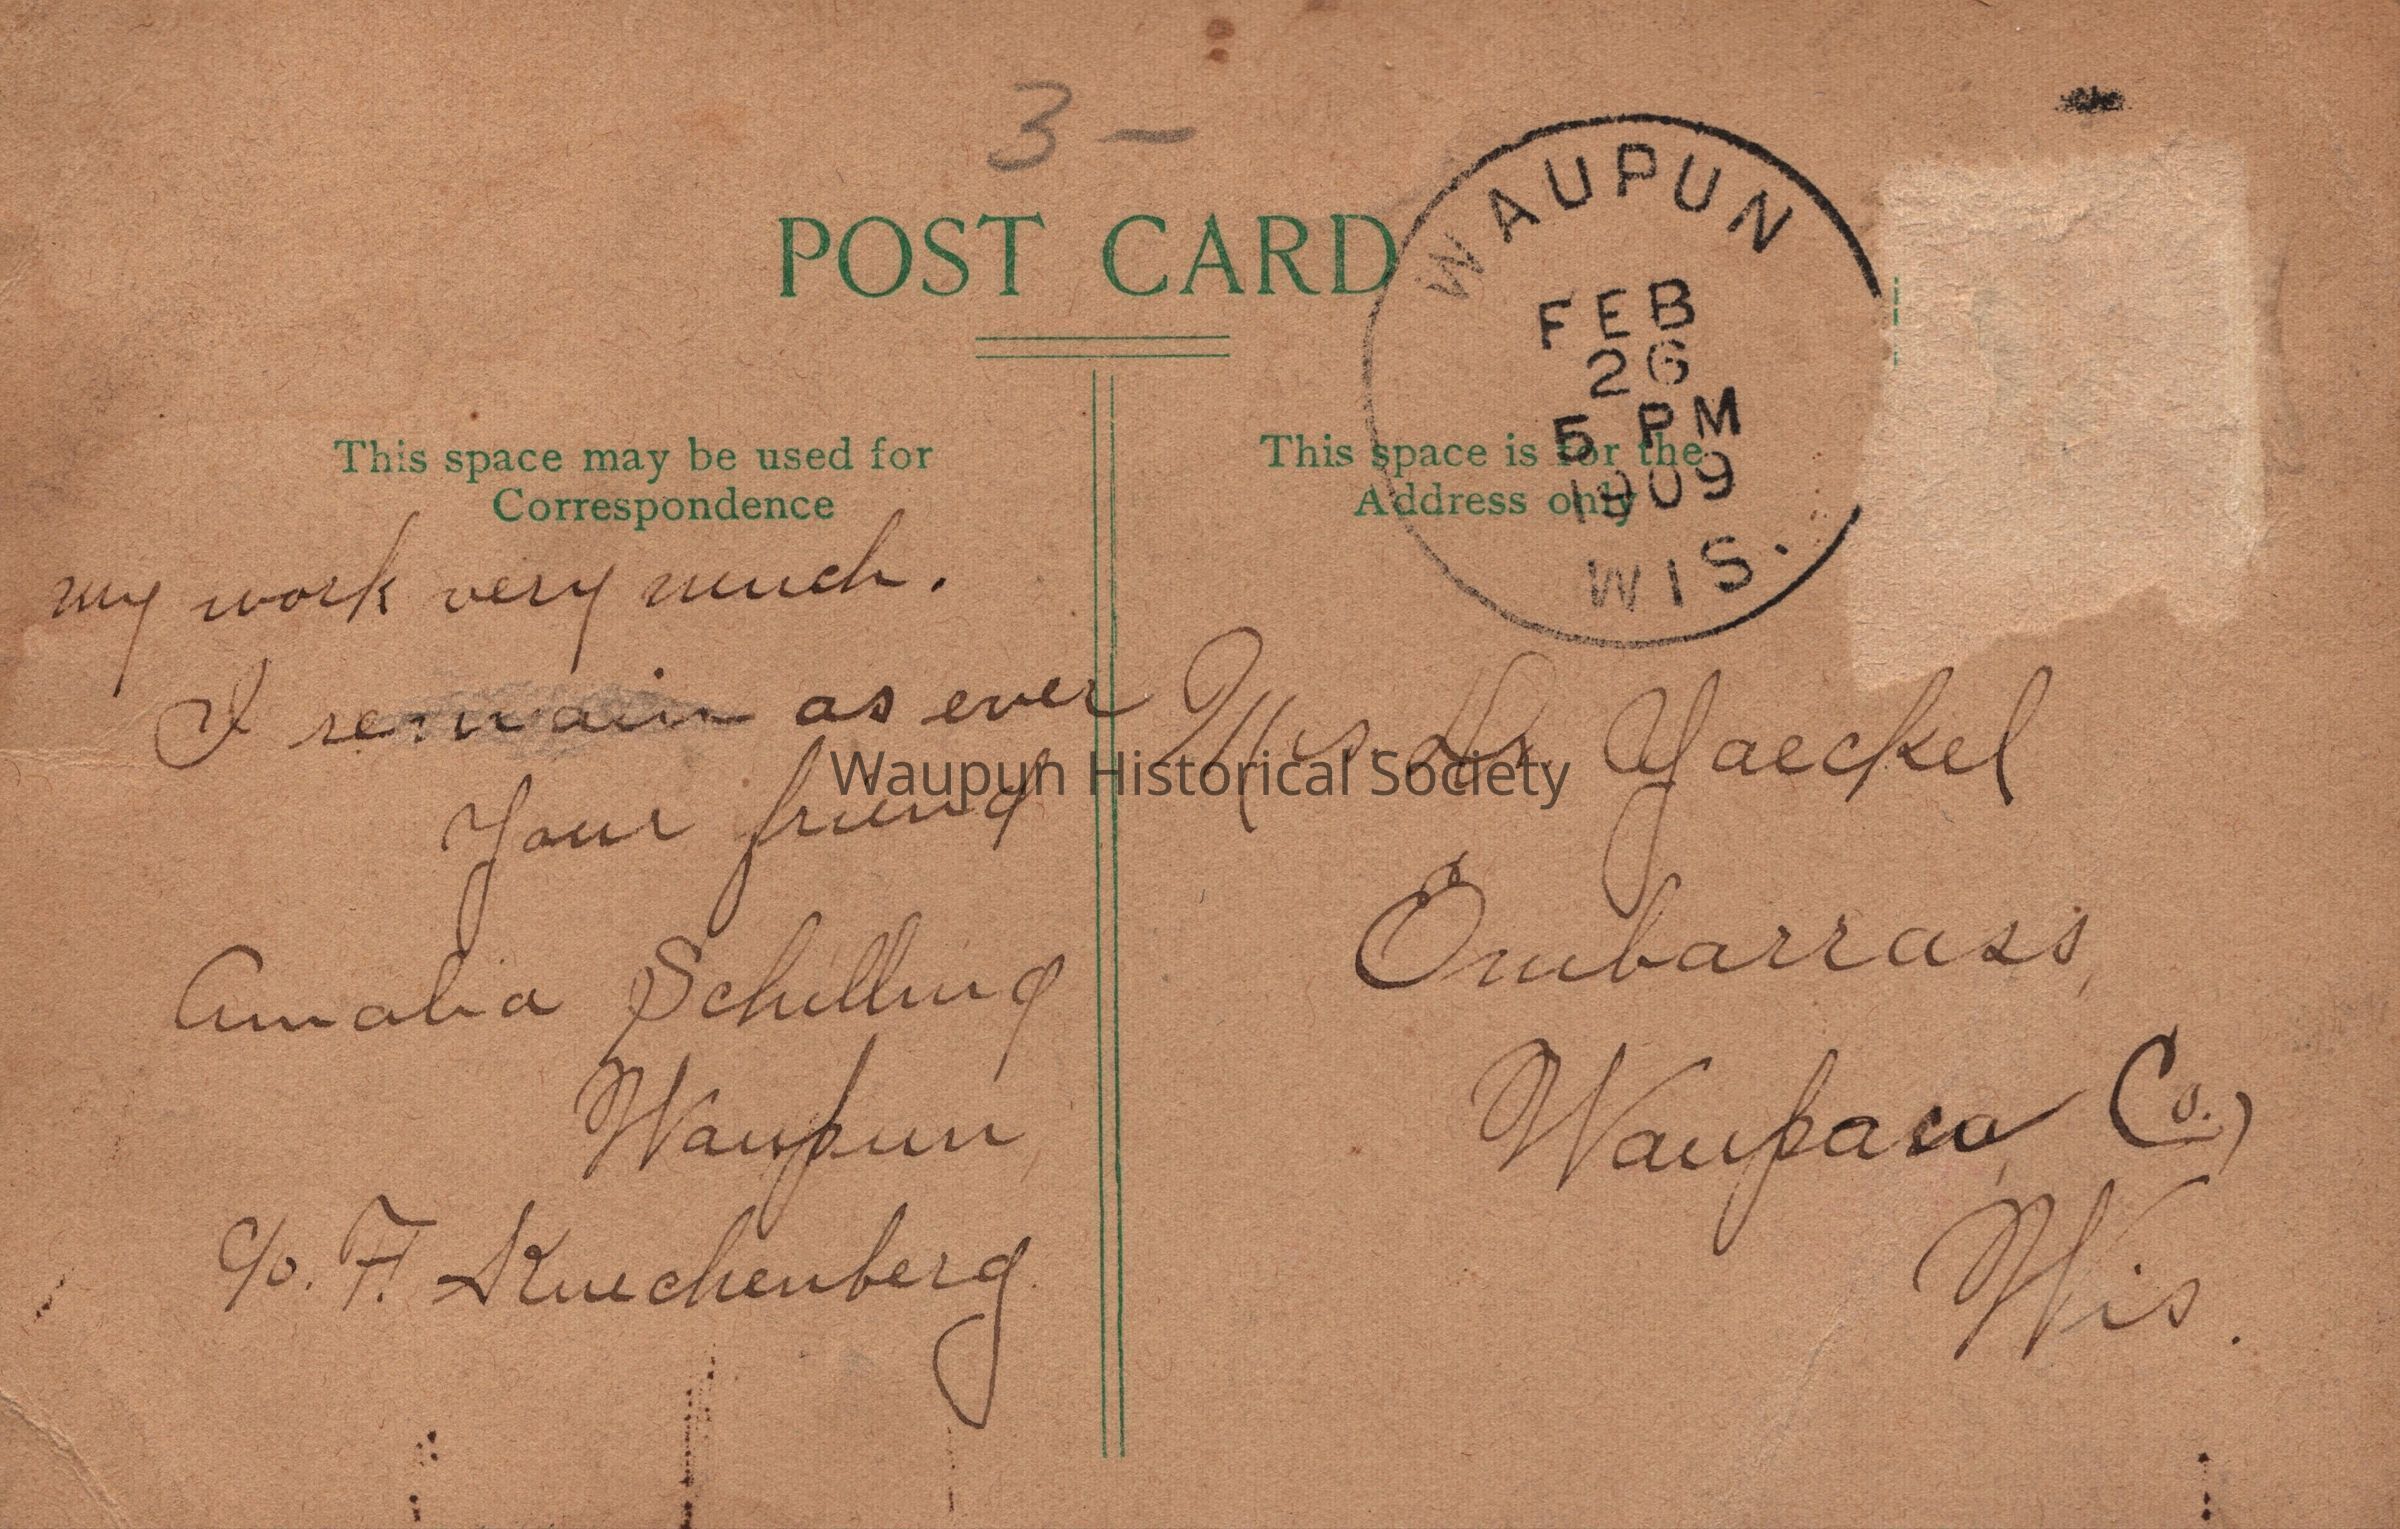 3 —
POST CARD
WAUPUN
FEB
26
5 PM
1909
WIS.
This space may be used for
Correspondence
This space is for the
Address only
my work very much.
I remain as ever
Your friend
Amalia Schilling
Waupun
c/o. F. Kuechenberg
Yaeckel
Embarrass,
Waupaca Co.,
Wis.
Waupun Historical Society